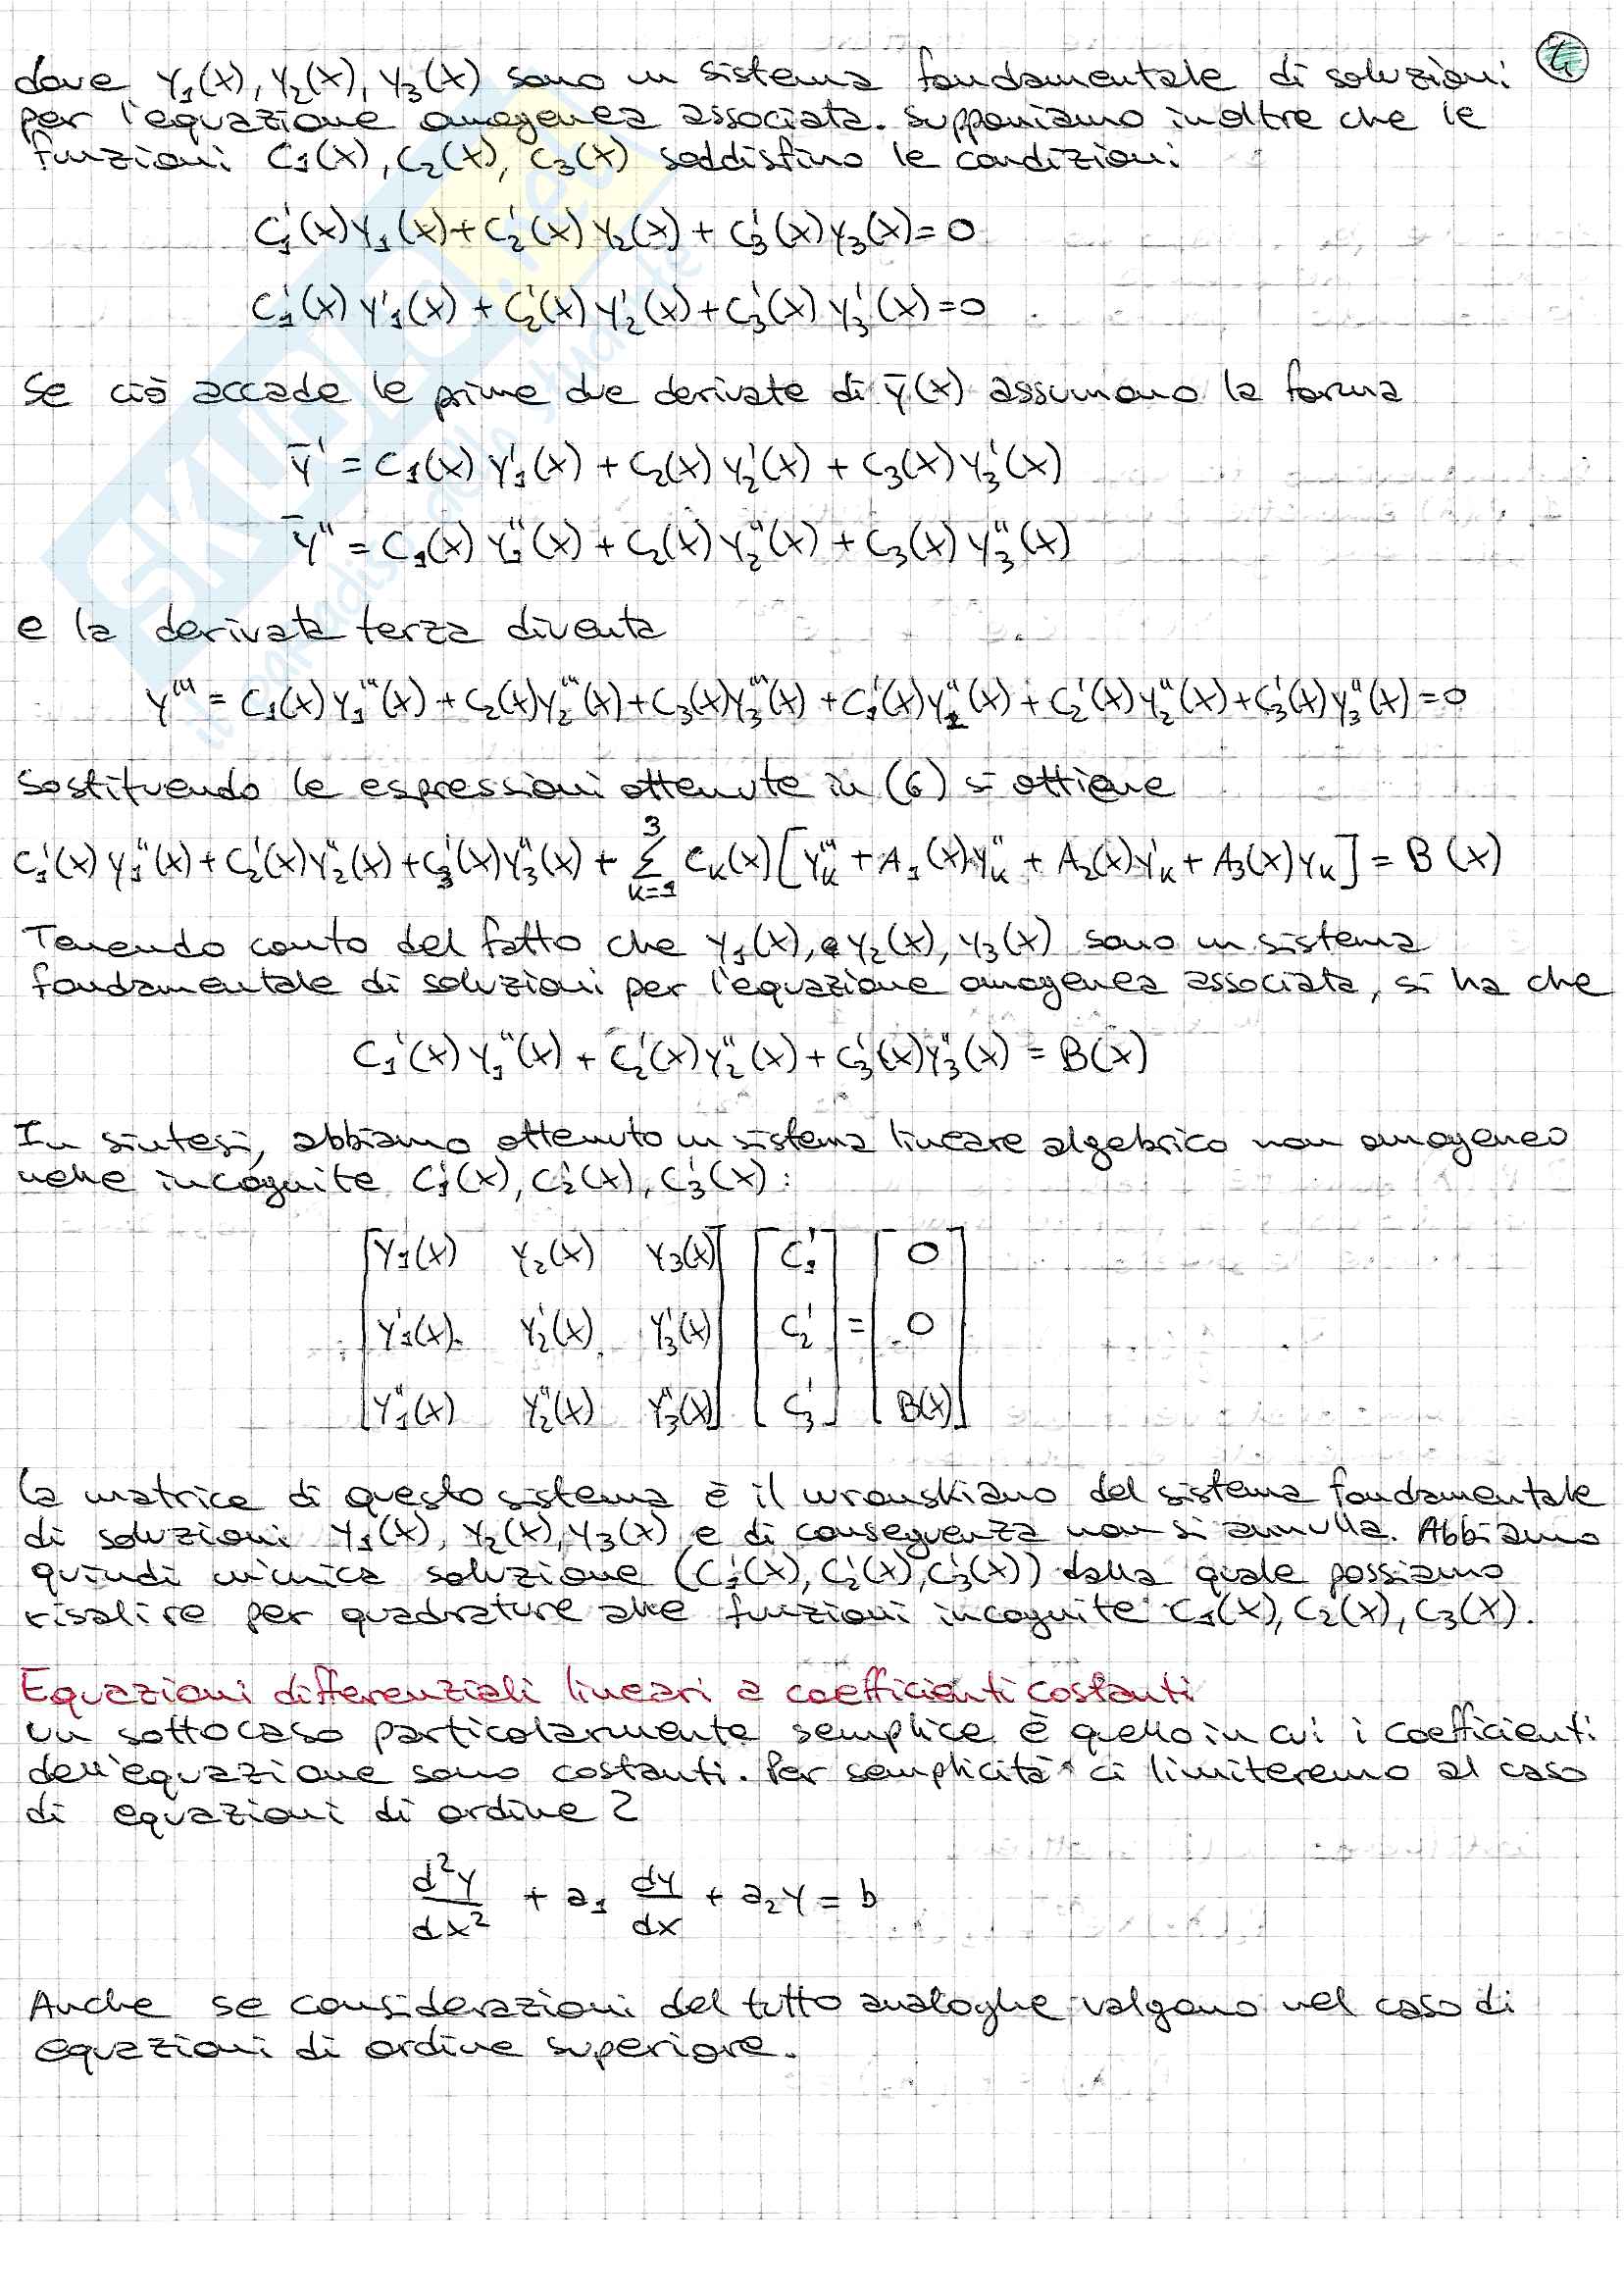 4
dove y₁(x), y₂(x), y₃(x) sono un sistema fondamentale di soluzioni
per l'equazione omogenea associata. Supponiamo inoltre che le
funzioni C₁(x), C₂(x), C₃(x) soddisfino le condizioni
C₁'(x)y₁(x)+C₂'(x)y₂(x)+C₃'(x)y₃(x)=0
C₁'(x)y₁'(x)+C₂'(x)y₂'(x)+C₃'(x)y₃'(x)=0
Se ciò accade le prime due derivate di ȳ(x) assumono la forma
ȳ' = C₁(x)y₁'(x) + C₂(x)y₂'(x) + C₃(x)y₃'(x)
ȳ'' = C₁(x)y₁''(x) + C₂(x)y₂''(x) + C₃(x)y₃''(x)
e la derivata terza diventa
y''' = C₁(x)y₁'''(x)+C₂(x)y₂'''(x)+C₃(x)y₃'''(x)+C₁'(x)y₁''(x)+C₂'(x)y₂''(x)+C₃'(x)y₃''(x)=0
Sostituendo le espressioni ottenute in (6) si ottiene
C₁'(x)y₁''(x)+C₂'(x)y₂''(x)+C₃'(x)y₃''(x)+ Σ_{k=1}^{3} C_k(x)[y_k'''+A₁(x)y_k''+A₂(x)y_k'+A₃(x)y_k] = B(x)
Tenendo conto del fatto che y₁(x), y₂(x), y₃(x) sono un sistema
fondamentale di soluzioni per l'equazione omogenea associata, si ha che
C₁'(x)y₁''(x)+C₂'(x)y₂''(x)+C₃'(x)y₃''(x) = B(x)
In sintesi, abbiamo ottenuto un sistema lineare algebrico non omogeneo
nelle incognite C₁'(x), C₂'(x), C₃'(x):
[y₁(x) y₂(x) y₃(x)] [C₁'] [0]
[y₁'(x) y₂'(x) y₃'(x)] [C₂'] = [0]
[y₁''(x) y₂''(x) y₃''(x)] [C₃'] [B(x)]
La matrice di questo sistema è il wronskiano del sistema fondamentale
di soluzioni y₁(x), y₂(x), y₃(x) e di conseguenza non si annulla. Abbiamo
quindi un'unica soluzione (C₁'(x), C₂'(x), C₃'(x)) dalla quale possiamo
risalire per quadrature alle funzioni incognite C₁(x), C₂(x), C₃(x).
Equazioni differenziali lineari a coefficienti costanti
Un sottocaso particolarmente semplice è quello in cui i coefficienti
dell'equazione sono costanti. Per semplicità ci limiteremo al caso
di equazioni di ordine 2
d²y/dx² + a₁ dy/dx + a₂y = b
Anche se considerazioni del tutto analoghe valgono nel caso di
equazioni di ordine superiore.